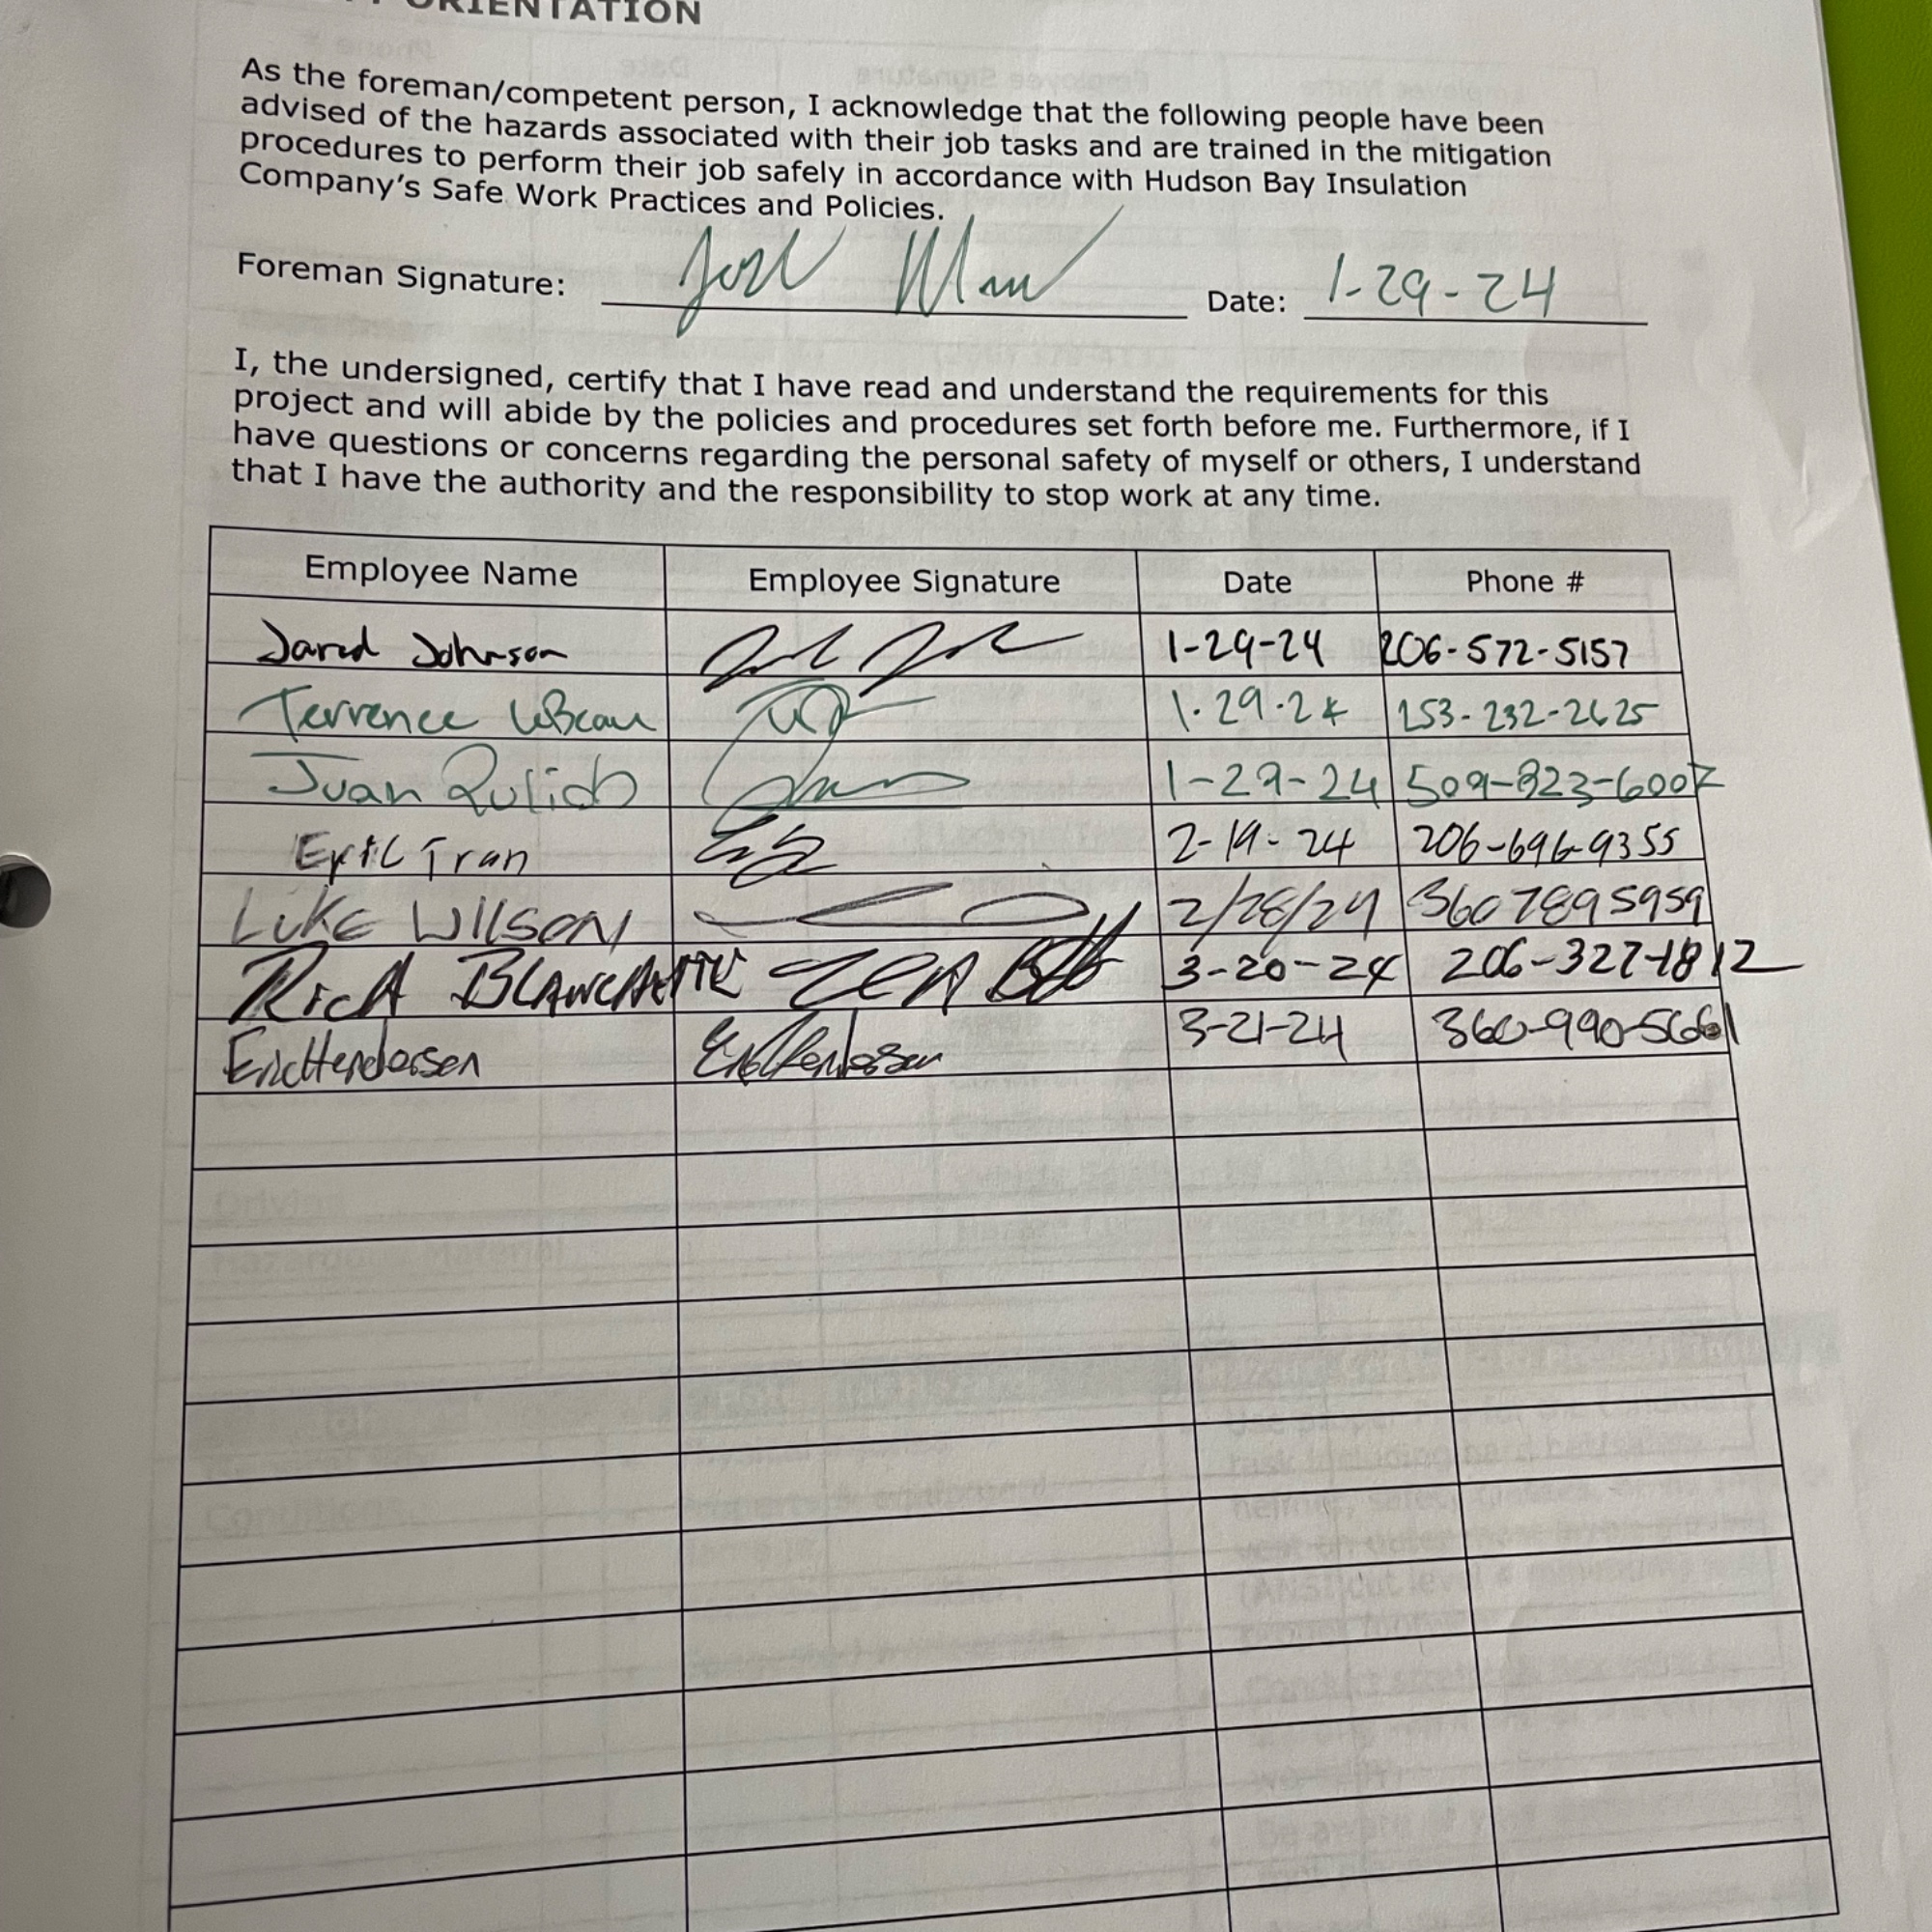 ORIENTATION
As the foreman/competent person, I acknowledge that the following people have been
advised of the hazards associated with their job tasks and are trained in the mitigation
procedures to perform their job safely in accordance with Hudson Bay Insulation
Company's Safe Work Practices and Policies.
Foreman Signature: Date: 1-29-24
I, the undersigned, certify that I have read and understand the requirements for this
project and will abide by the policies and procedures set forth before me. Furthermore, if I
have questions or concerns regarding the personal safety of myself or others, I understand
that I have the authority and the responsibility to stop work at any time.
Employee Name Employee Signature Date Phone #
Jared Johnson 1-29-24 206-572-5157
Terrence LeBeau 1.29.24 253-232-2625
Juan 1-29-24 509-823-6007
Eric Tran 2-19-24 206-696-9355
LUKE WILSON 2/28/24 3607895959
Rich 3-20-24 206-327-1812
Eric Henderson 3-21-24 360-990-5661